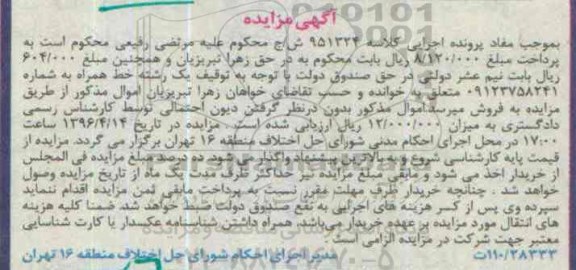 آگهی مزایده
بموجب مفاد پرونده اجرایی کلاسه ۹۵۱۳۲۴ ش/ج محکوم علیه مرتضی رفیعی محکوم است به
پرداخت مبلغ ۸/۱۲۰/۰۰۰ ریال بابت محکوم به در حق زهرا تبریزیان و همچنین مبلغ ۶۰۴/۰۰۰
ریال بابت نیم عشر دولتی در حق صندوق دولت با توجه به توقیف یک رشته خط همراه به شماره
۰۹۱۲۳۷۵۸۲۴۱ متعلق به خوانده و حسب تقاضای خواهان زهرا تبریزیان اموال مذکور از طریق
مزایده به فروش میرسد اموال مذکور بدون درنظر گرفتن دیون احتمالی توسط کارشناس رسمی
دادگستری به میزان ۱۲/۰۰۰/۰۰۰ ریال ارزیابی شده است . مزایده در تاریخ ۱۳۹۶/۴/۱۴ ساعت
۱۷:۰۰ در محل اجرای احکام مدنی شورای حل اختلاف منطقه ۱۶ تهران برگزار می گردد. مزایده از
قیمت پایه کارشناسی شروع و به بالاترین پیشنهاد واگذار می شود. ده درصد مبلغ مزایده فی المجلس
از خریدار اخذ می شود و مابقی مبلغ مزایده نیز حداکثر ظرف مدت یک ماه از تاریخ مزایده وصول
خواهد شد . چنانچه خریدار ظرف مهلت مقرر نسبت به پرداخت مابقی ثمن مزایده اقدام ننماید
سپرده وی پس از کسر هزینه های اجرایی به نفع صندوق دولت ضبط خواهد شد. ضمنا کلیه هزینه
های انتقال مورد مزایده بر عهده خریدار می باشد. همراه داشتن شناسنامه عکسدار یا کارت شناسایی
معتبر جهت شرکت در مزایده الزامی است .
۱۱۰/۲۸۳۳۳ت مدیر اجرای احکام شورای حل اختلاف منطقه ۱۶ تهران